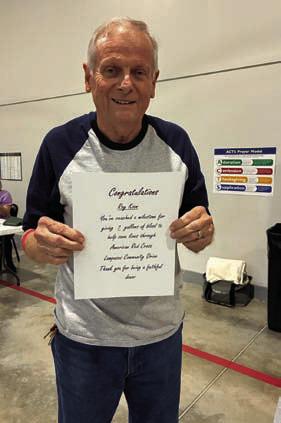 Congratulations
Ray Kism
You've reached a milestone for
giving 2 gallons of blood to
help save lives through
American Red Cross
Lampasas Community Drive
Thank you for being a faithful
donor
ACTS Prayer Model
Adoration
Confession
Thanksgiving
Supplication